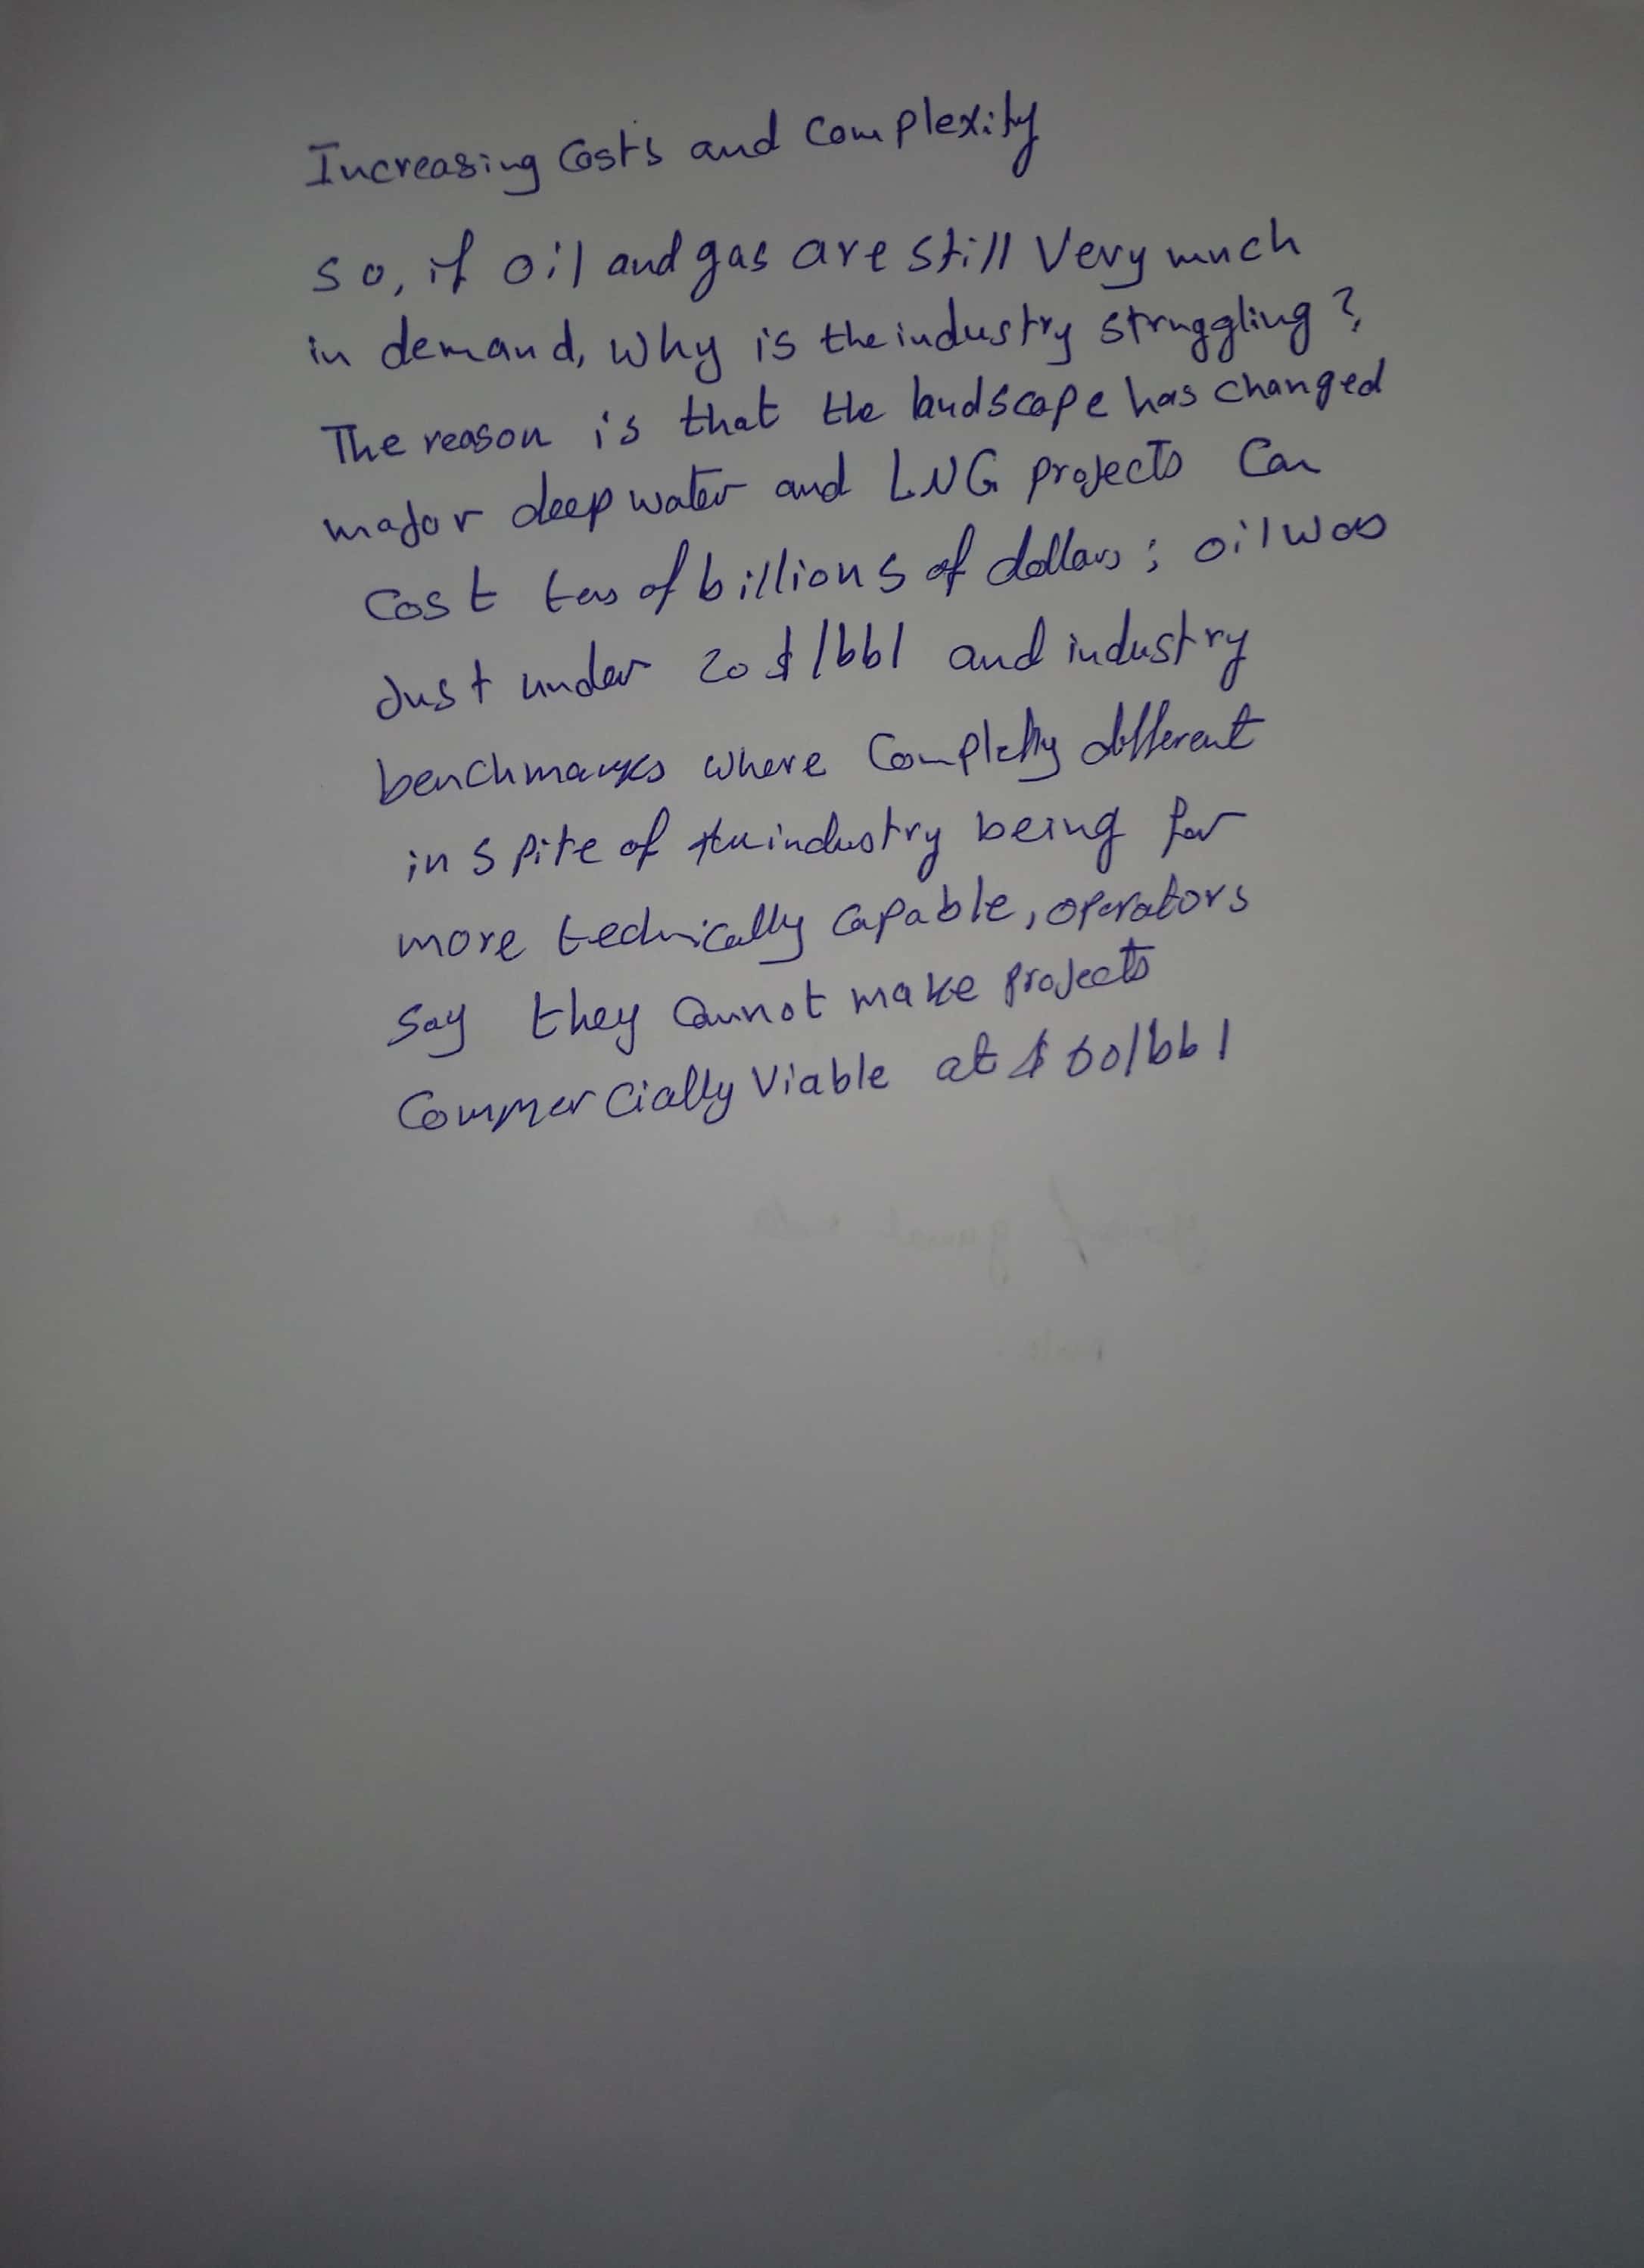 Increasing Costs and Complexity
So, if oil and gas are still Very much
in demand, Why is the industry struggling?
The reason is that the landscape has changed
major deep water and LNG projects Can
Cost tens of billions of dollars; oil was
Just under 20 $/bbl and industry
benchmarks where Completly different
in spite of the industry being far
more technically capable, operators
say they cannot make projects
Commercially Viable at $60/bbl